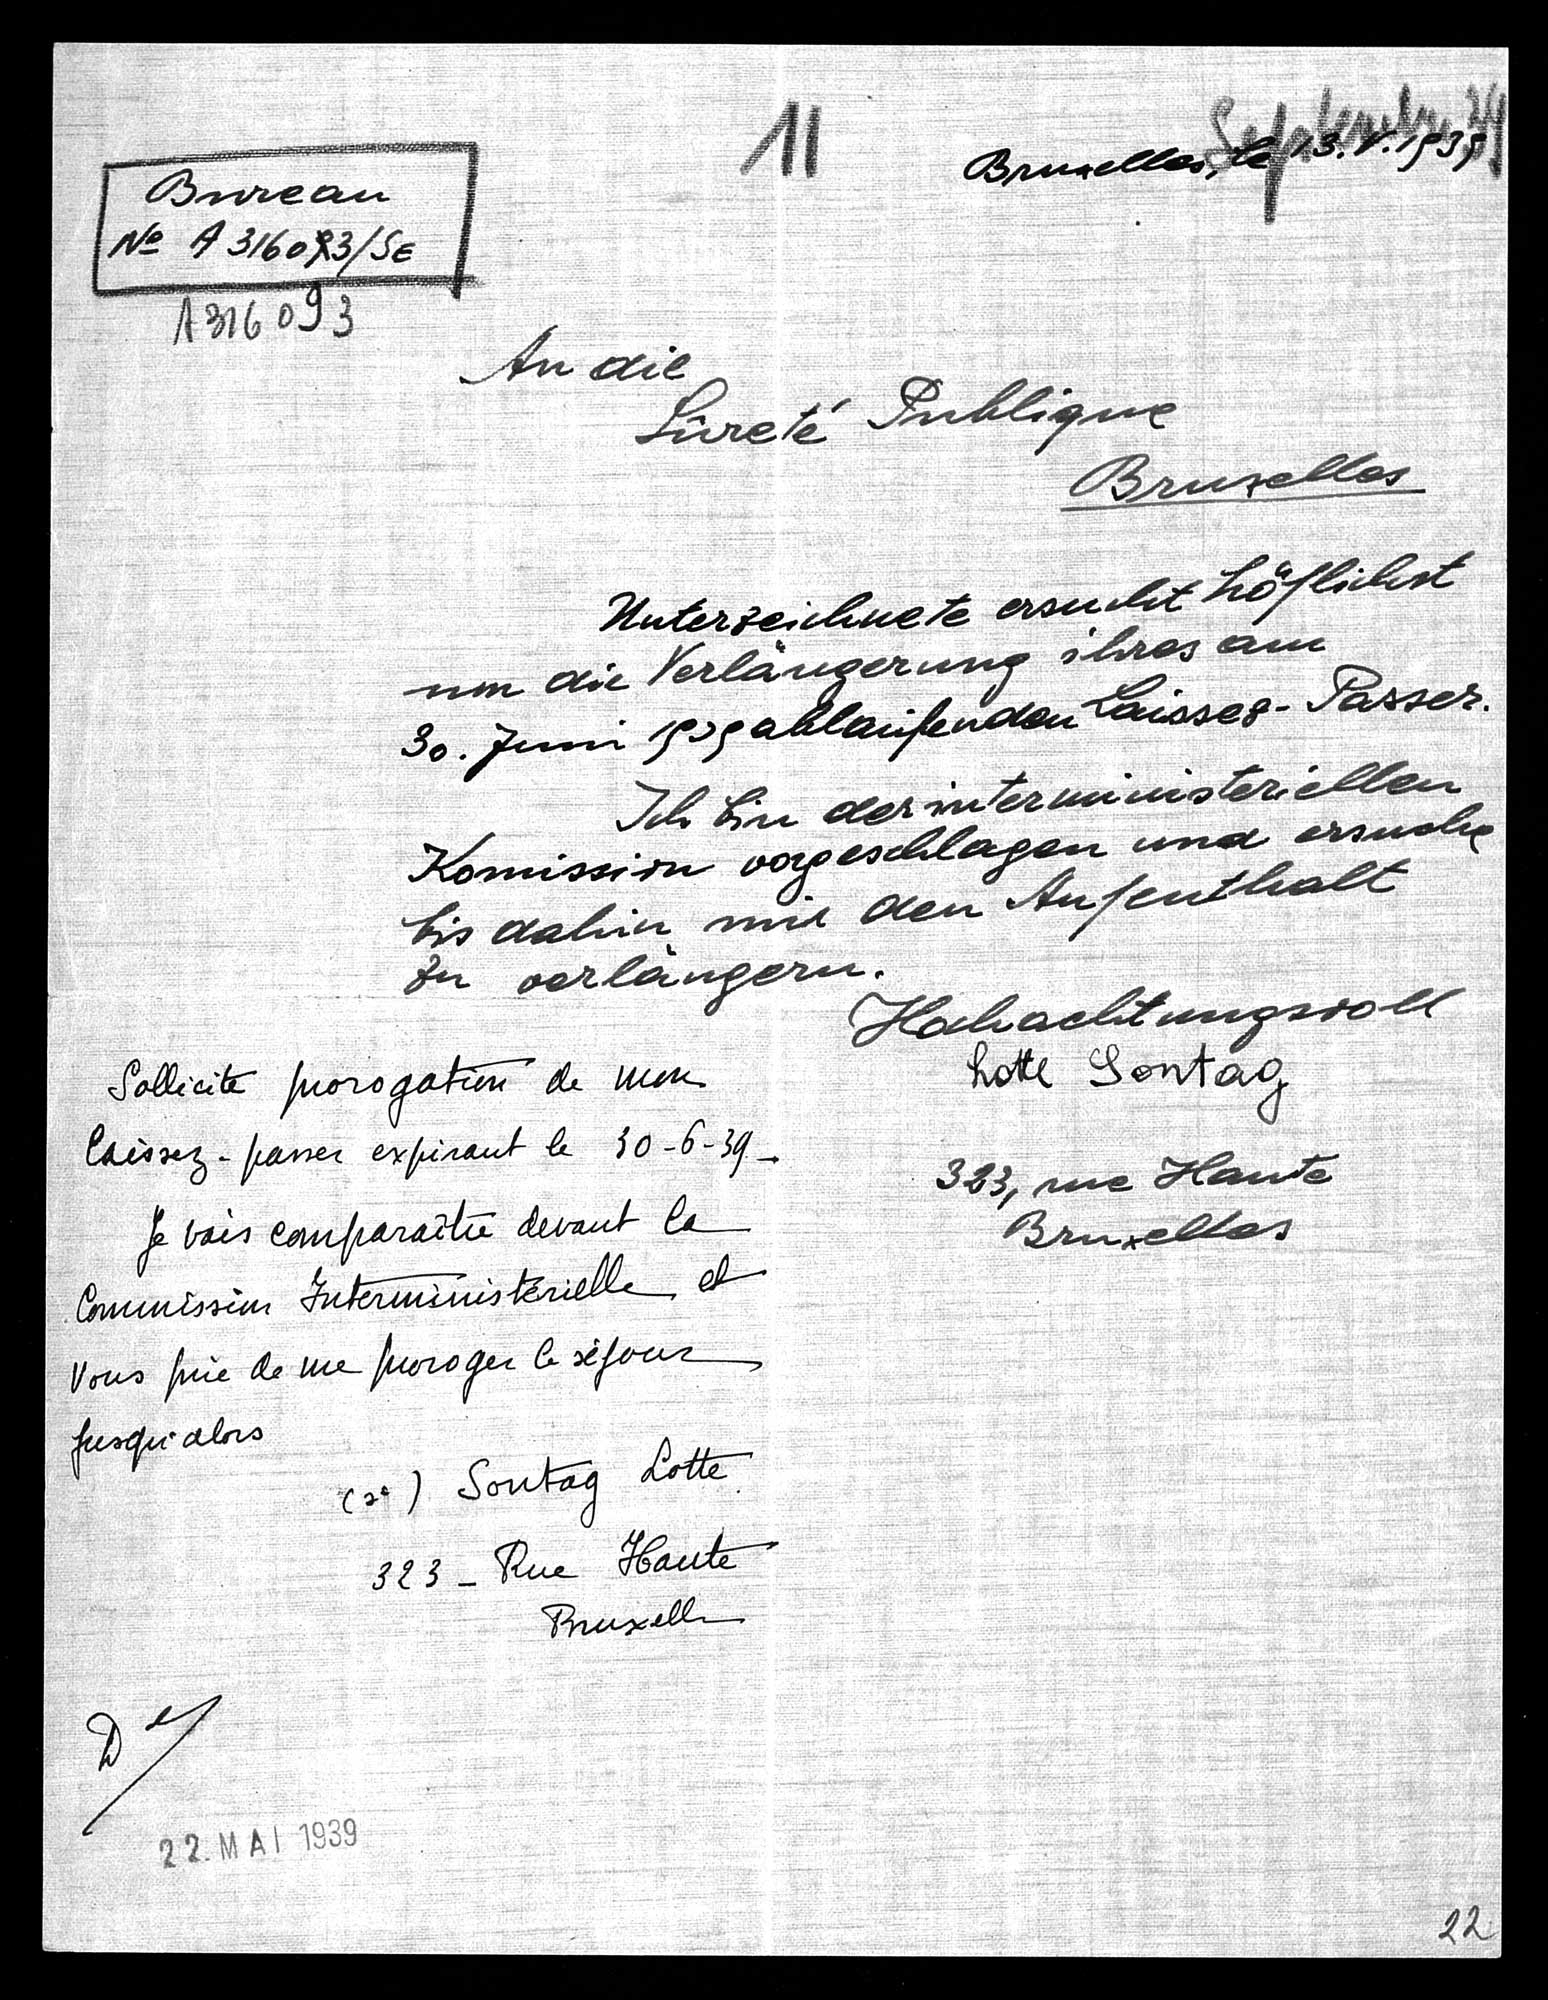 11
September 39
Bruxelles, le 13. V. 1939
Bureau
No A 316093/SE
A316093
An die
Sûreté Publique
Bruxelles
Unterzeichnete ersucht höflichst
um die Verlängerung ihres am
30. Juni 1939 ablaufenden Laisser-Passer.
Ich bin der interministeriellen
Komission vorgeschlagen und ersuche
bis dahin mir den Aufenthalt
zu verlängern.
Hochachtungsvoll
Lotte Sontag
323, rue Haute
Bruxelles
Sollicite prorogation de mon
Laissez-passer expirant le 30-6-39.
Je vais comparaître devant la
Commission Interministérielle et
Vous prie de me proroger le séjour
jusqu'alors
Sontag Lotte
323 - Rue Haute
Bruxelles
22. MAI 1939
22